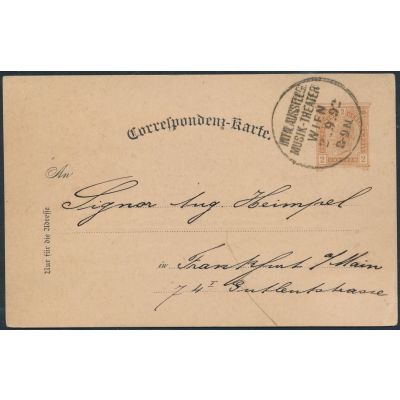 INTN. AUSSTELLG.
MUSIK-THEATER
WIEN
9.92
8-9N
2 2
Correspondenz-Karte.
An
Signor Aug. Heimpel
in Frankfurt a/Main
74 I Gutleutstrasse
Nur für die Adresse